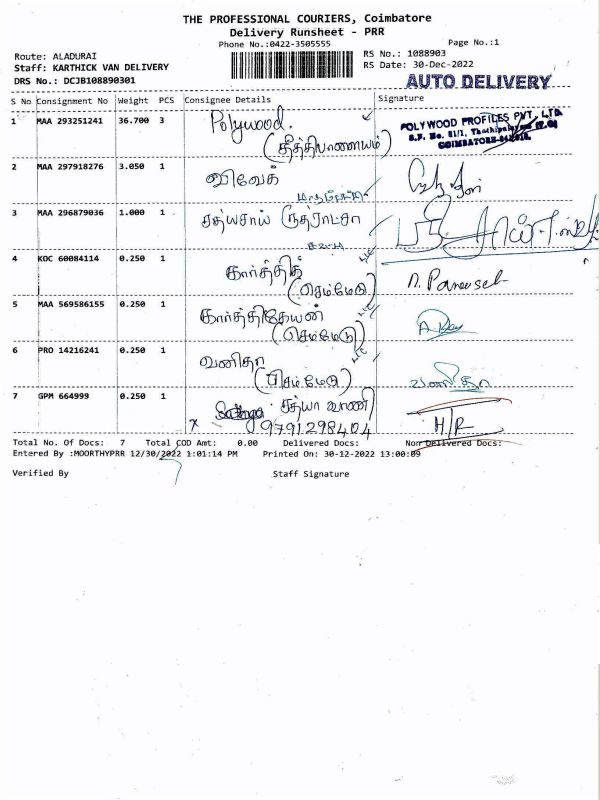 THE PROFESSIONAL COURIERS, Coimbatore
Delivery Runsheet - PRR
Phone No.:0422-3505555
Page No.:1
Route: ALADURAI
Staff: KARTHICK VAN DELIVERY
DRS No.: DCJB108890301
RS No.: 1088903
RS Date: 30-Dec-2022
AUTO DELIVERY
S No Consignment No Weight PCS Consignee Details Signature
1 MAA 293251241 36.700 3 Polywood.
(தீத்திபாளையம்)
POLYWOOD PROFILES PVT. LTD.
S.F. No. 51/1,
COIMBATORE
2 MAA 297918276 3.050 1 விவேக்
3 MAA 296879036 1.000 1 சத்யசாய் ருத்ராட்சா
4 KOC 60084114 0.250 1 கார்த்திக்
(செம்மேடு)
5 MAA 569586155 0.250 1 கார்த்திகேயன்
(செம்மேடு)
6 PRO 14216241 0.250 1 வனிதா வனிதா
(செம்மேடு)
7 GPM 664999 0.250 1 சத்யா வாணி
x 9791298404 H/R
Total No. Of Docs: 7 Total COD Amt: 0.00 Delivered Docs: Non Delivered Docs:
Entered By :MOORTHYPRR 12/30/2022 1:01:14 PM Printed On: 30-12-2022 13:00:09
Verified By Staff Signature